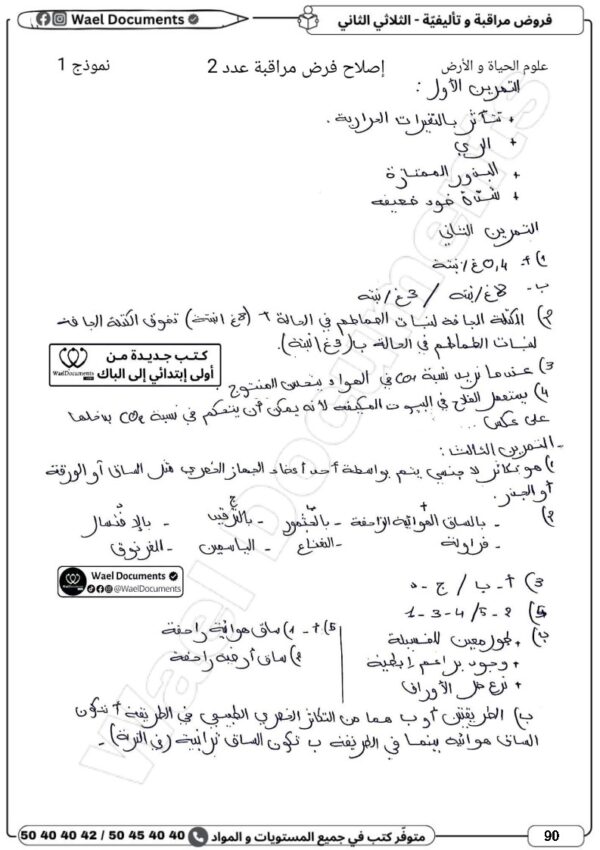 Wael Documents
فروض مراقبة و تأليفيّة - الثلاثي الثاني
علوم الحياة و الأرض
إصلاح فرض مراقبة عدد 2
نموذج 1
التمرين الأول :
+ تتأثر بالتغيرات الحرارية .
+ الري
+ البذور الممتازة
+ شدّة ضوء ضعيفة
التمرين الثاني
1) أ- 0,4غ/نبتة
ب- 8غ/نبتة / 3غ/نبتة
2) الكتلة الجافة لنبات الطماطم في الحالة أ (8غ/نبتة) تفوق الكتلة الجافة
لنبات الطماطم في الحالة ب (3غ/نبتة).
كتب جديدة من
أولى إبتدائي إلى الباك
WaelDocuments
3) عندما تزيد نسبة CO₂ في الهواء يتحسن المنتوج
4) يستعمل الفلاح في البيوت المكيفة لأنه يمكن أن يتحكم في نسبة CO₂ بداخلها
على عكس ...
- التمرين الثالث :
1) هو تكاثر لا جنسي يتم بواسطة أحد أعضاء الجهاز الخضري مثل الساق أو الورقة
أو الجذر.
2) أ - بالساق الهوائية الزاحفة - ب - ج - بالترقيد - د - بالإفتسال
- فراولة - النعناع - الياسمين -
Wael Documents
@WaelDocuments
3) أ - ب / ج - د
4) 1 - 3 - 4 / 5 - 2
ب) + طول معين للفسيلة
+ وجود براعم إبطية
+ نزع كل الأوراق
5) أ - 1) ساق هوائية زاحفة
2) ساق أرضية زاحفة
ب) الطريقتين أ و ب هما من التكاثر الخضري الطبيعي في الطريقة أ تكون
الساق هوائية بينما في الطريقة ب تكون الساق ترابية (في التربة) .
50 40 40 42 / 50 45 40 40 متوفّر كتب في جميع المستويات و المواد
90